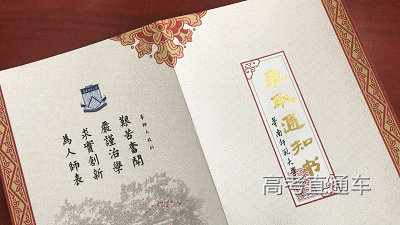 華師大校訓
艱苦奮鬥
嚴謹治學
求實創新
為人師表
录取通知书
華南師範大學
高考直通车